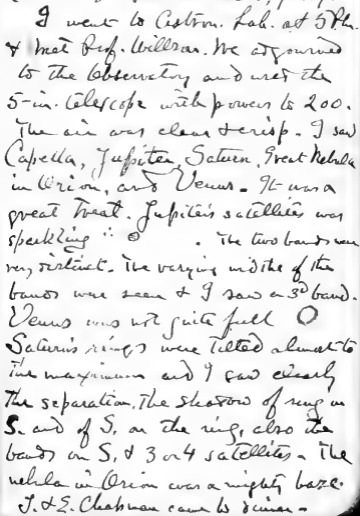 I went to Astron. Lab. at 5 P.m.
& met Prof. Willson. We adjourned
to the Observatory and used the
5-in. telescope with powers to 200.
The air was clear & crisp. I saw
Capella, Jupiter, Saturn, Great Nebula
in Orion, and Venus. It was a
great treat. Jupiter's satellites was
sparkling . The two bands were
very distinct. The varying widths of the
bands were seen & I saw a 3d band.
Venus was not quite full
Saturn's rings were tilted almost to
the maximum and I saw clearly
the separation, the shadow of ring on
S. and of S. on the ring, also the
bands on S. & 3 or 4 satellites. The
nebula in Orion was a mighty haze.
J. & E. Chapman came to dinner.